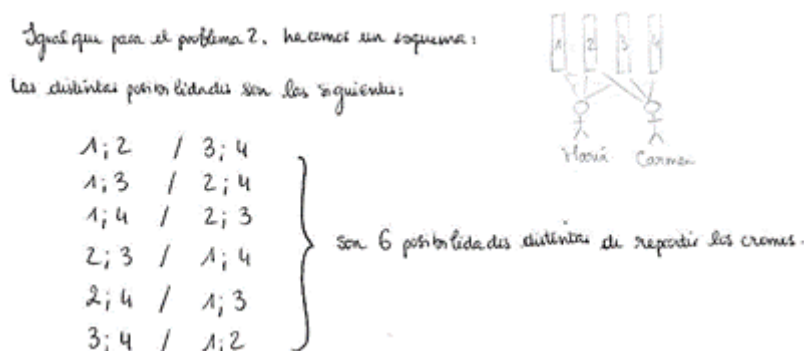 Igual que para el problema 2, hacemos un esquema:
1 2 3 4
Las distintas posibilidades son las siguientes:
María Carmen
1; 2 / 3; 4
1; 3 / 2; 4
1; 4 / 2; 3
2; 3 / 1; 4
2; 4 / 1; 3
3; 4 / 1; 2
son 6 posibilidades distintas de repartir los cromos.